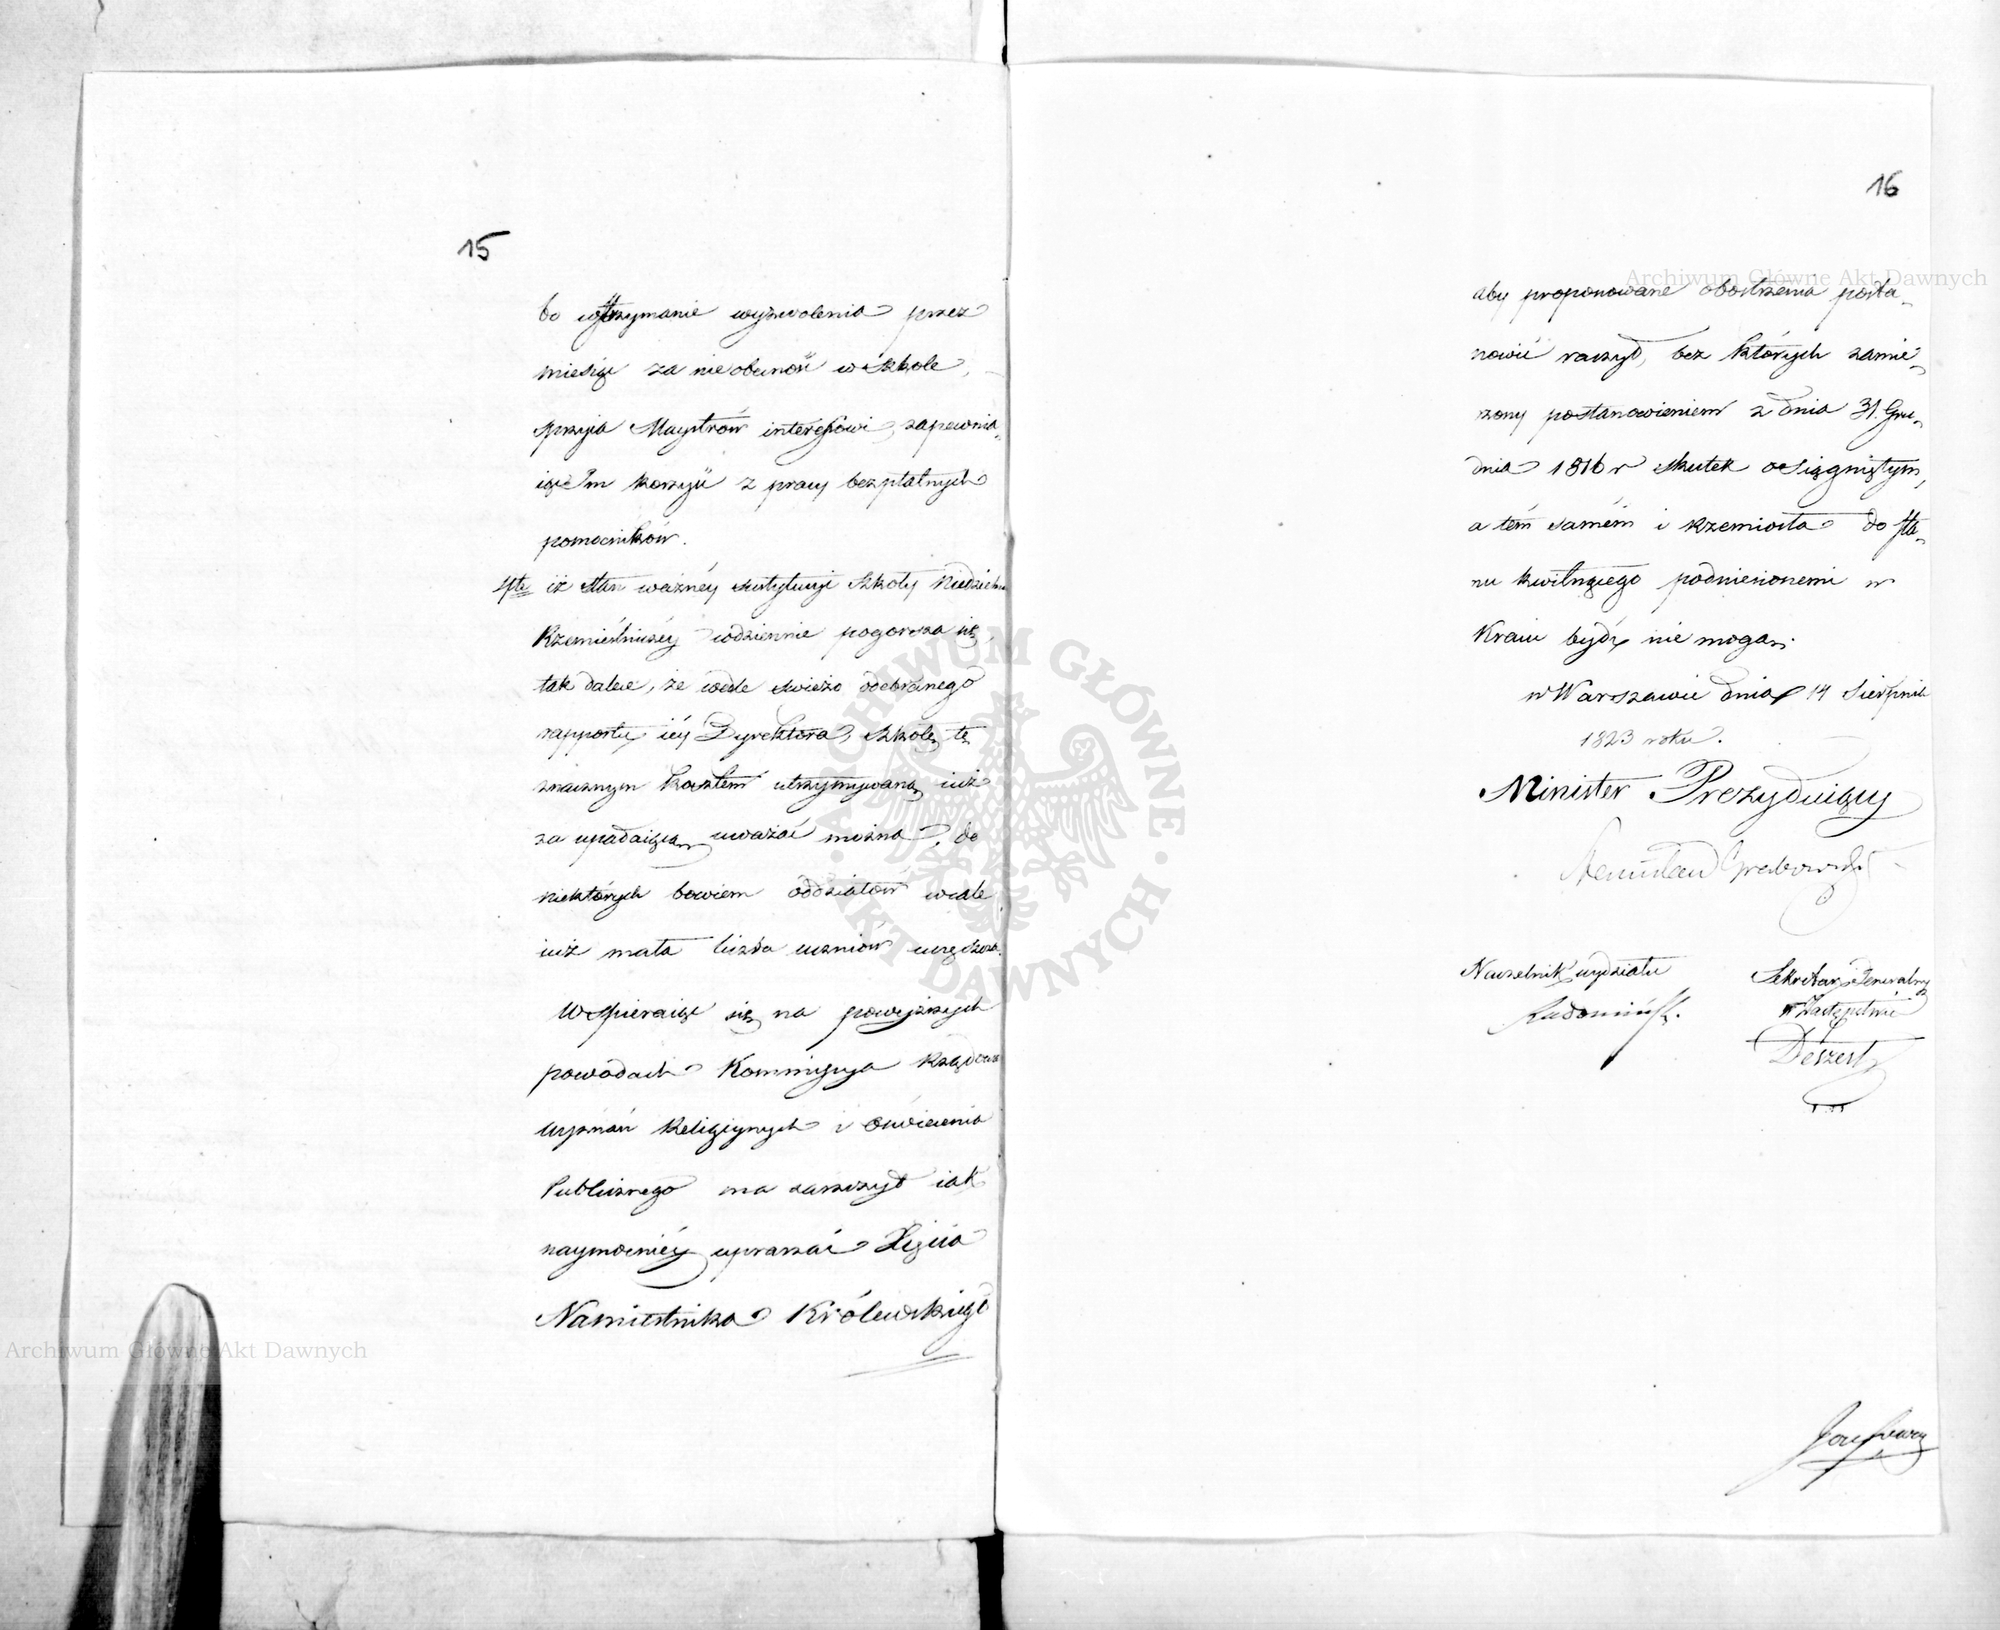 15
bo wstrzymanie wyzwolenia przez
miesiąc za nieobecność w szkole,
sprzyia Maystrów interessowi, zapewnia-
iąc Im korzyść z pracy bezpłatnych
pomocników.
4te iż stan ważnéy instytucyi Szkoły Niedzielno
Rzemieślniczéy codziennie pogorsza się,
tak dalece, że wedle świeżo odebranego
rapportu iéy Dyrektora, szkołę tę
znacznym kosztem utrzymywaną iuż
za upadaiącą uważać można, do
niektórych bowiem oddziałów wcale
iuż mała liczba uczniów uczęszcza.
Wspieraiąc się na powyższych
powodach Kommissya Rządowa
Wyznań Religiynych i Oświecenia
Publicznego ma zaszczyt iak
naymocniéy upraszać Xięcia
Namiestnika Królewskiego
16
aby proponowane obostrzenia posta-
nowić raczył, bez których zamie-
rzony postanowieniem z dnia 31 Gru-
dnia 1816 r skutek osiągniętym,
a tém samém i rzemiosła do sta-
nu kwitnącego podniesionemi w
Kraiu bydź nie mogą.
w Warszawie dnia 14 Sierpnia
1823 roku.
Minister Prezyduiący
Stanisław Grabowski
Naczelnik wydziału
Radomiński.
Sekretarz Jeneralny
w Zastępstwie
Deszert
Archiwum Główne Akt Dawnych
Archiwum Główne Akt Dawnych
ARCHIWUM GŁÓWNE · AKT DAWNYCH ·